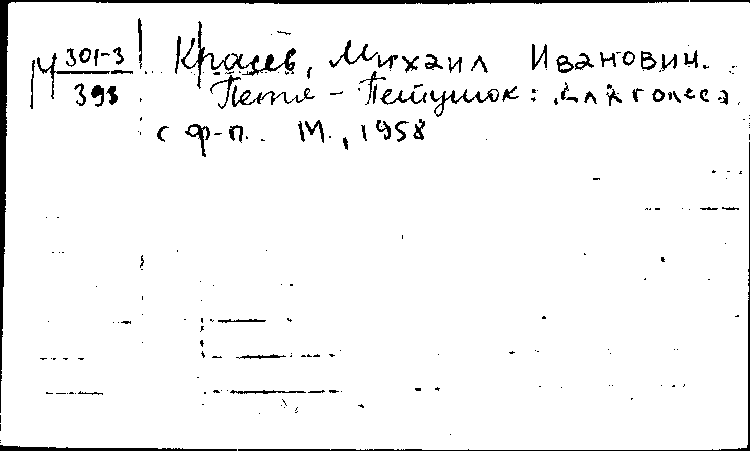 М 301-3 Красев, Михаил Иванович.
393 Петя - Петушок: Для голоса
с ф-п. М., 1958